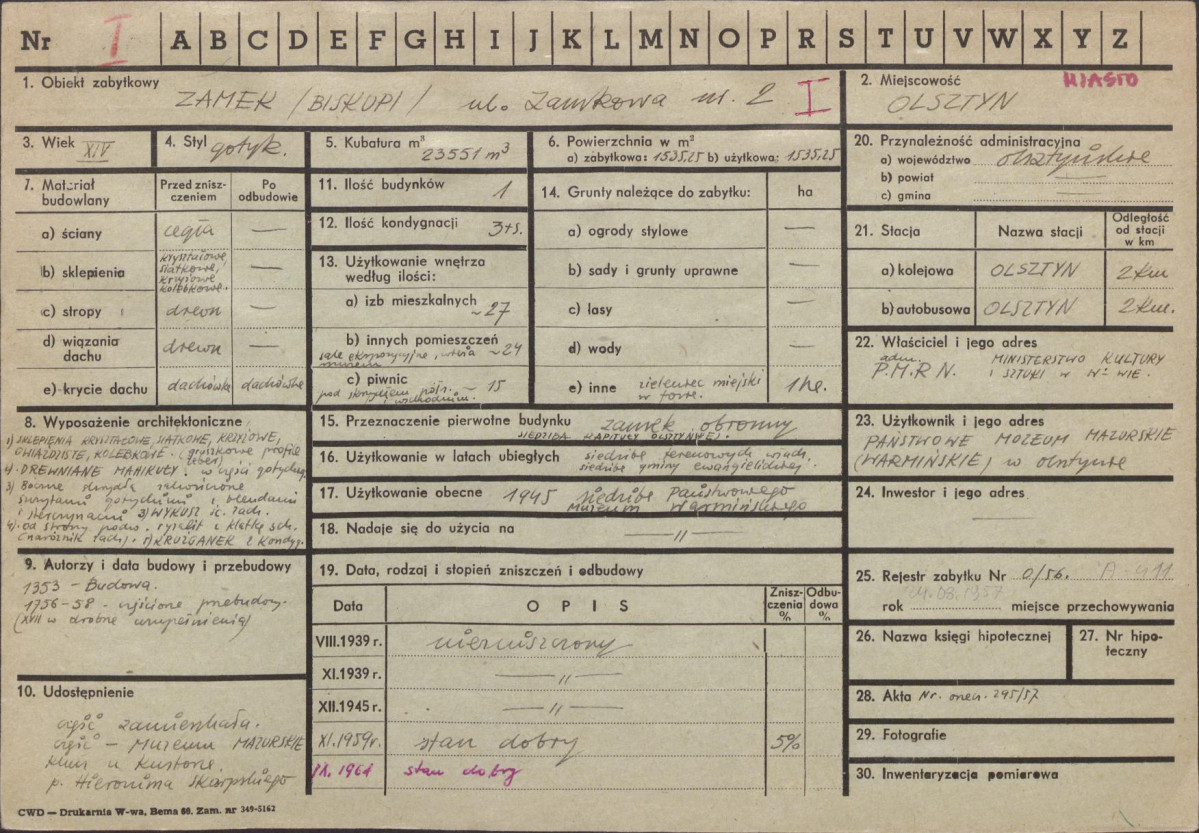 Nr I A B C D E F G H I J K L M N O P R S T U V W X Y Z
1. Obiekt zabytkowy
ZAMEK /BISKUPI/ ul. Zamkowa nr. 2 I
2. Miejscowość MIASTO
OLSZTYN
3. Wiek XIV
4. Styl gotyk.
5. Kubatura m³
23551 m³
6. Powierzchnia w m²
a) zabytkowa: 1535,25 b) użytkowa: 1535,25
7. Materiał budowlany
Przed zniszczeniem
Po odbudowie
a) ściany cegła —
b) sklepienia kryształowe, siatkowe, krzyżowe, kolebkowe. —
c) stropy drewn —
d) wiązania dachu drewn —
e) krycie dachu dachówka dachówka
8. Wyposażenie architektoniczne
1) SKLEPIENIA KRYSZTAŁOWE, SIATKOWE, KRZYŻOWE,
GWIAŹDZISTE, KOLEBKOWE. (gruszkowe profile
żeber)
9. Autorzy i data budowy i przebudowy
1353 – Budowa.
1756–58 –
(XVII w drobne uzupełnienia)
10. Udostępnienie
część zamieszkała.
część – Muzeum MAZURSKIE
klucz u kustosza,
p. Hieronima Skurpskiego
11. Ilość budynków 1
12. Ilość kondygnacji 3+s.
13. Użytkowanie wnętrza według ilości:
a) izb mieszkalnych ~27
b) innych pomieszczeń ~24
sale ekspozycyjne,
muzeum
c) piwnic ~ 15
pod skrzydłem półn.
i wschodnim.
14. Grunty należące do zabytku: ha
a) ogrody stylowe —
b) sady i grunty uprawne —
c) lasy —
d) wody —
e) inne zieleniec miejski w fosie. 1 ha.
15. Przeznaczenie pierwotne budynku zamek obronny
SIEDZIBA KAPITUŁY OLSZTYŃSKIEJ.
16. Użytkowanie w latach ubiegłych siedziba terenowych władz,
siedziba gminy ewangielickiej.
17. Użytkowanie obecne 1945 siedziba Państwowego
Muzeum Warmińskiego
18. Nadaje się do użycia na —〃—
19. Data, rodzaj i stopień zniszczeń i odbudowy
Data OPIS Zniszczenia % Odbudowa %
VIII.1939 r. niezniszczony
XI.1939 r. —〃—
XII.1945 r. —〃—
XI.1959r. stan dobry 5%
IX. 1961 stan dobry
20. Przynależność administracyjna
a) województwo olsztyńskie
b) powiat —
c) gmina
21. Stacja Nazwa stacji Odległość od stacji w km
a) kolejowa OLSZTYN 2 km
b) autobusowa OLSZTYN 2 km.
22. Właściciel i jego adres
adm. P.M.R.N.
MINISTERSTWO KULTURY
I SZTUKI w W-WIE.
23. Użytkownik i jego adres
PAŃSTWOWE MUZEUM MAZURSKIE
(WARMIŃSKIE) w Olsztynie
24. Inwestor i jego adres
—
25. Rejestr zabytku Nr 0/56. A-411
rok miejsce przechowywania
26. Nazwa księgi hipotecznej
27. Nr hipoteczny
28. Akta Nr. 295/57
29. Fotografie
30. Inwentaryzacja pomiarowa
CWD — Drukarnia W-wa, Bema 60. Zam. nr 349-5162